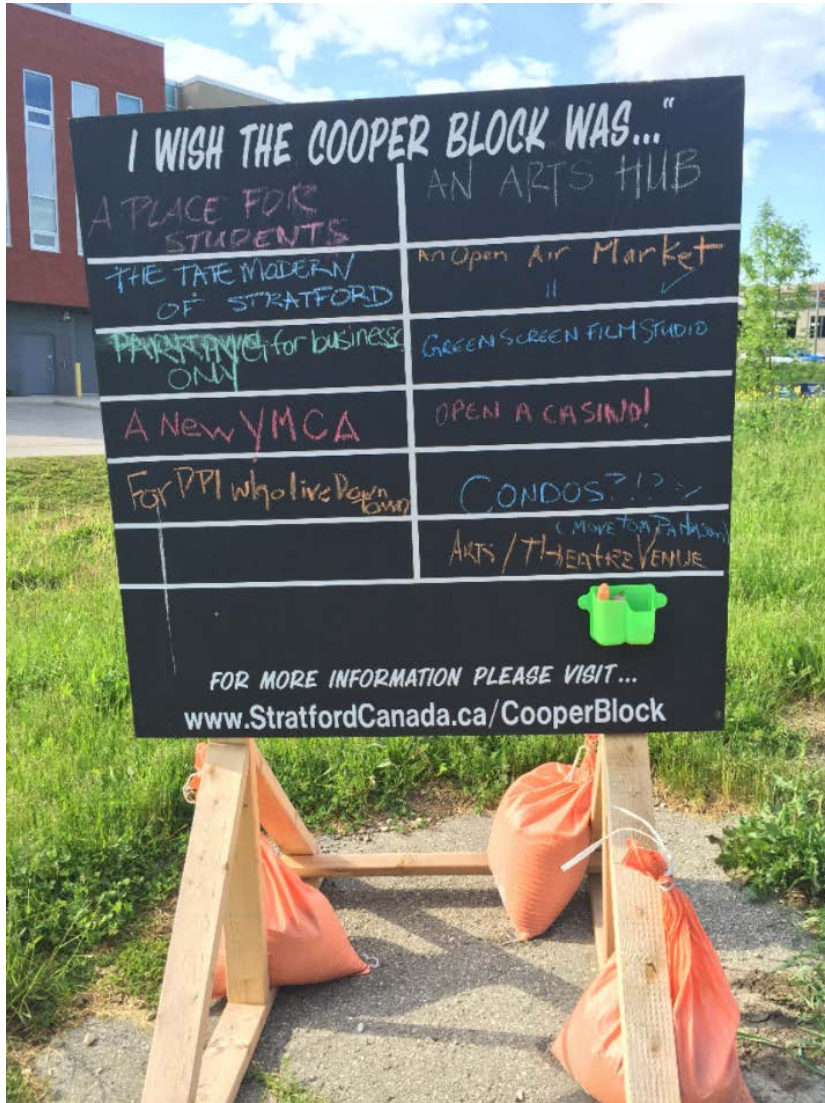 I WISH THE COOPER BLOCK WAS..."
A PLACE FOR
STUDENTS
THE TATE MODERN
OF STRATFORD
PARKING for business
ONLY
A New YMCA
For PPl who live Down
town
AN ARTS HUB
An Open Air Market
GREEN SCREEN FILM STUDIO
OPEN A CASINO!
CONDOS?!?
(MOVE TOM PATTERSON)
ARTS / THEATRE VENUE
FOR MORE INFORMATION PLEASE VISIT...
www.StratfordCanada.ca/CooperBlock